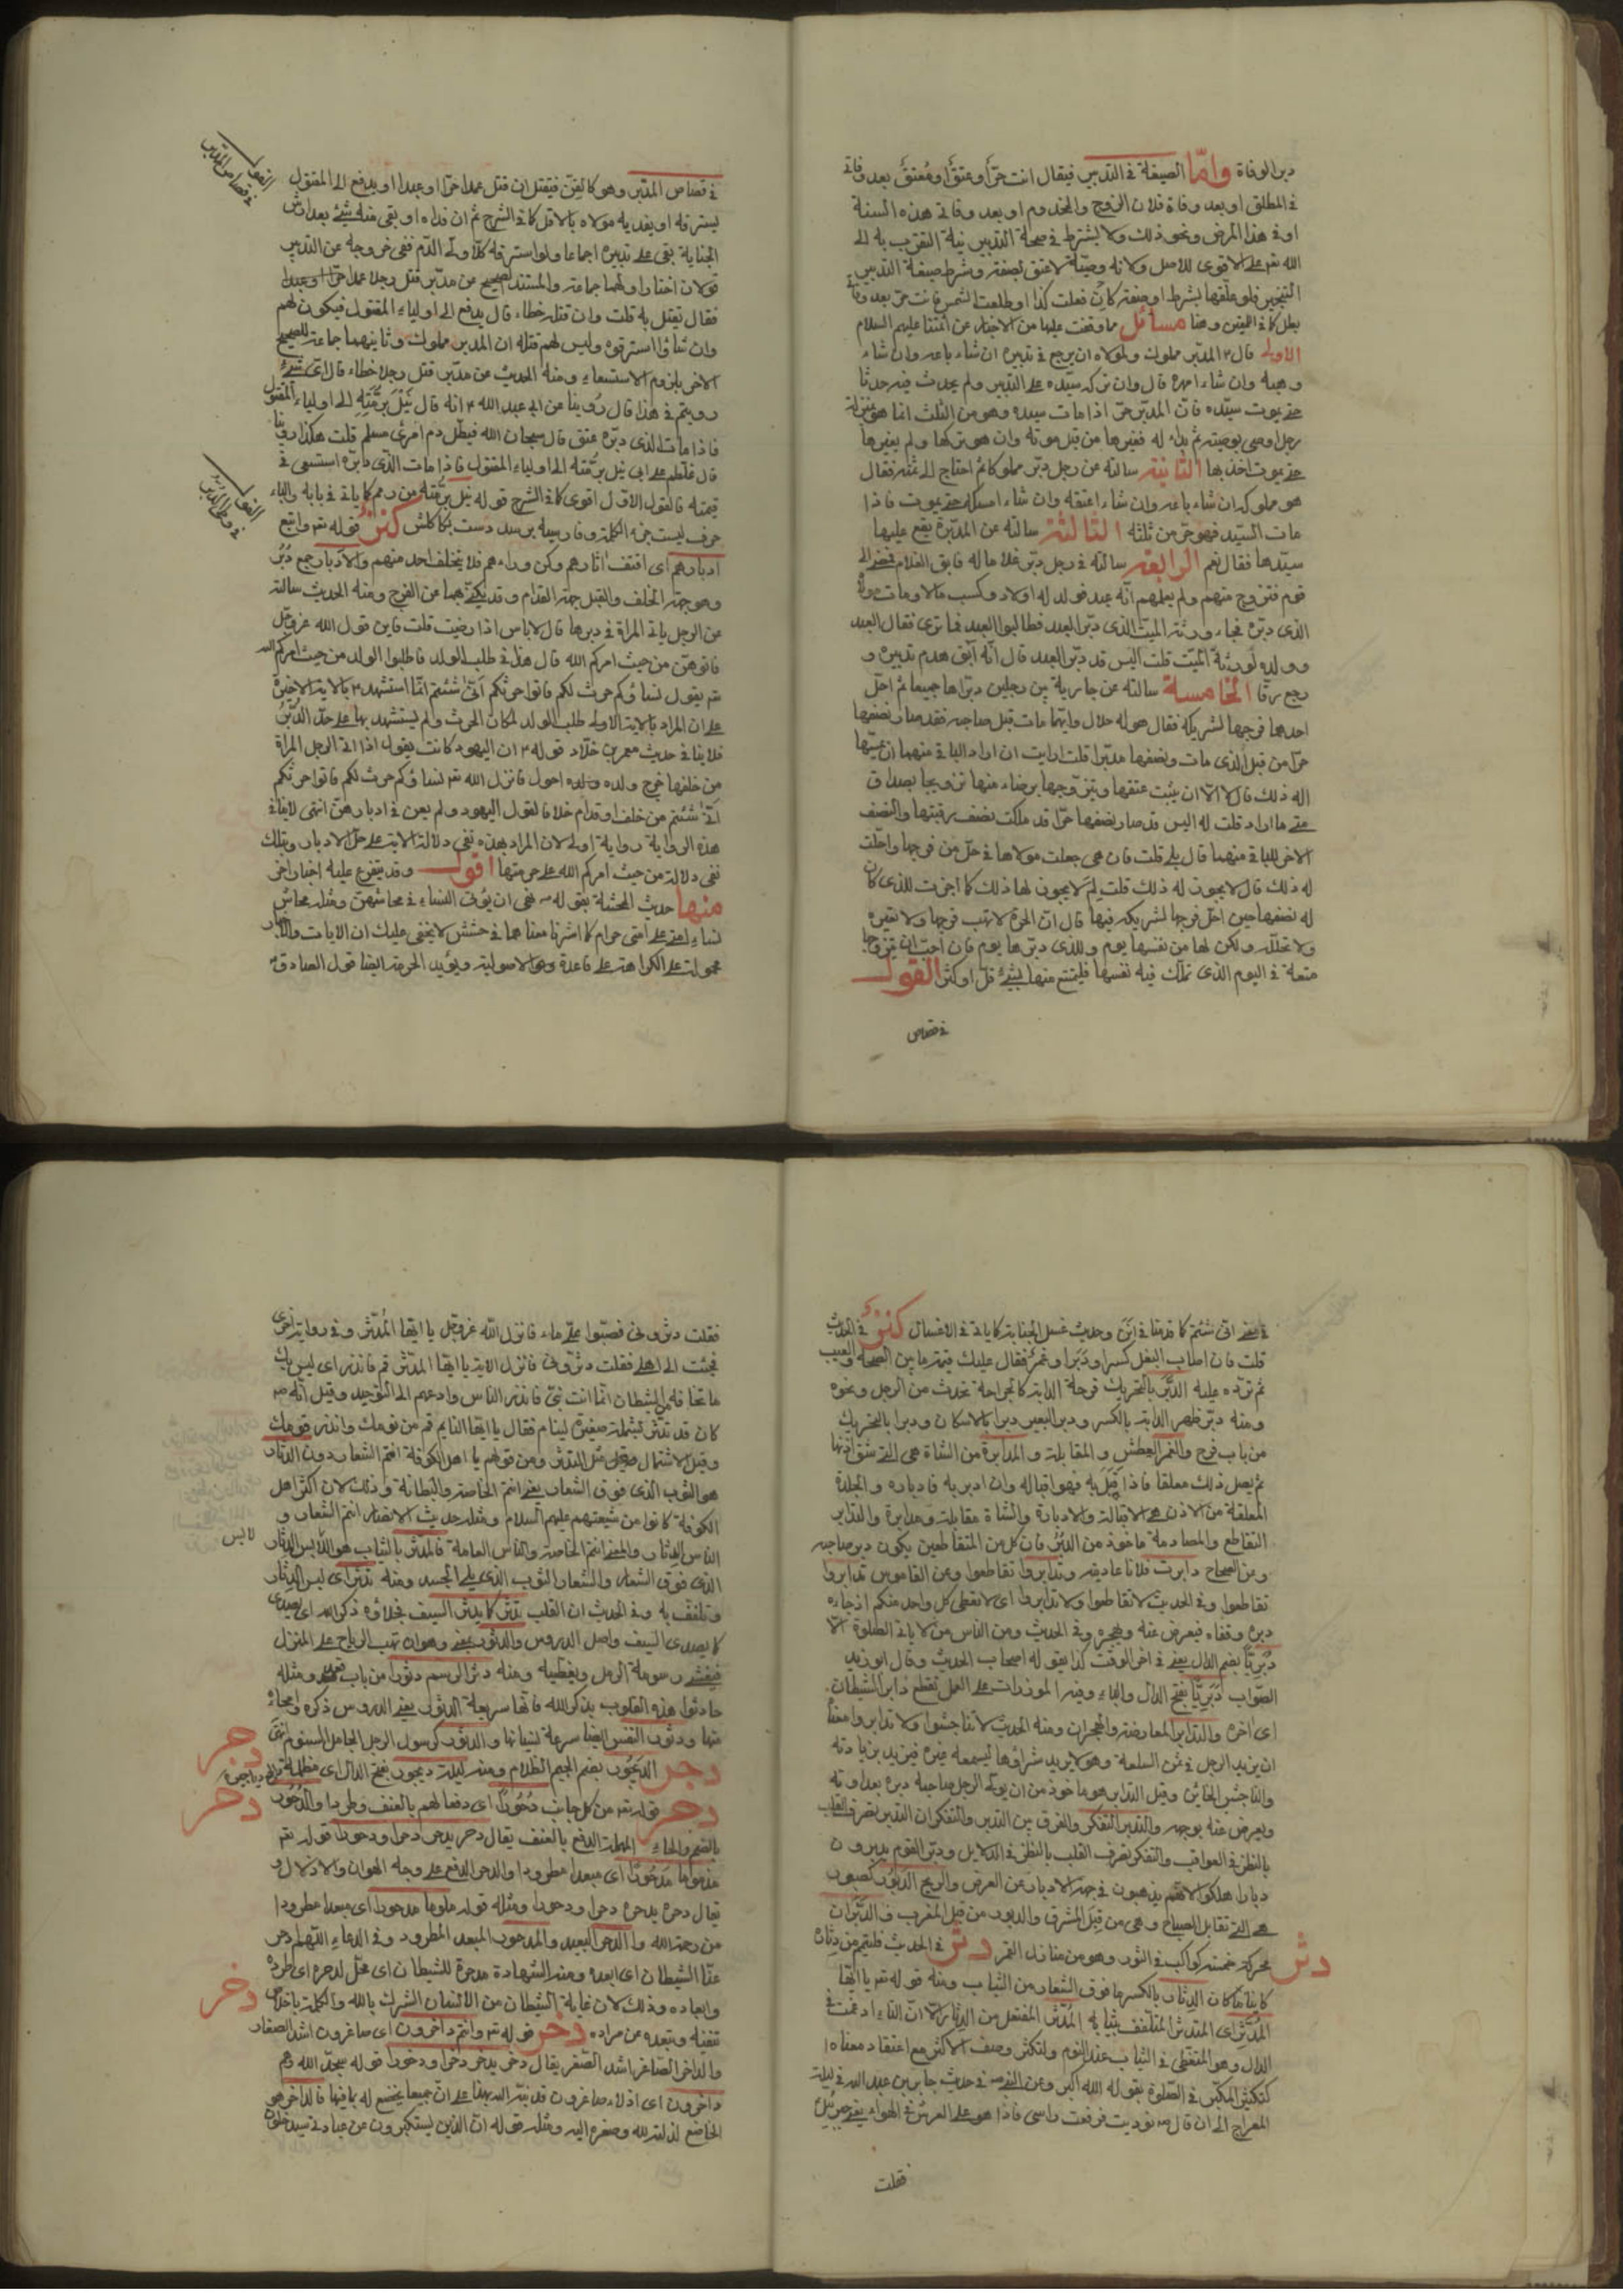 دبر الوفاة واما الصيغة في التدبير فيقال انت حرّ او عتق او مُعتق بعد وفاتي
في المطلق او بعد وفاة فلان الزوج والمخدوم او بعد وفاتي هذه السنة
او في هذا المرض ونحو ذلك ولا يشترط في صحة التدبير نية التقرب به الى
الله تع على الاقوى للاصل ولانه وصيّة لا عتق بصفة وشرط صيغة التدبير
التنجيز فلو علّقها بشرط او صفة كان فعلت كذا او طلعت الشمس فانت حرّ بعد وفاتي
بطل كما في اليمين وهنا مسائل مما وقفت عليها من الاخبار عن ائمتنا عليهم السلام
الاولى قال ع المدبّر مملوك ولمولاه ان يرجع في تدبيره ان شاء باعه وان شاء
وهبه وان شاء امهره قال وان تركه سيّده على التدبير ولم يحدث فيه حدثا
حتى يموت سيّده فانّ المدبّر حرّ اذا مات سيده وهو من الثلث انما هو بمنزلة
رجل اوصى بوصية ثم بدا له فغيرها من قبل موته وان هو تركها ولم يغيرها
حتى يموت اخذ بها الثانية سالته عن رجل دبّر مملوكا ثم احتاج الى ثمنه فقال
هو مملوكه ان شاء باعه وان شاء اعتقه وان شاء امسكه حتى يموت فاذا
مات السيّد فهو حرّ من ثلثه الثالثة سالته عن المدبّرة يقع عليها
سيّدها فقال نعم الرابعة سالته في رجل دبّر غلاما له فابق الغلام فمضى الى
قوم فتزوج منهم ولم يعلمهم انّه عبد فولد له اولاد وكسب مالا ومات مولاه
الذي دبّره فجاء ورثة الميت الذي دبّر العبد فطالبوا العبد فما ترى فقال العبد
وولده لورثة الميّت قلت اليس قد دبّر العبد قال انّه ابق هدم تدبيره و
رجع رقّا الخامسة سالته عن جارية بين رجلين دبّراها جميعا ثم احلّ
احدهما فرجها لشريكه فقال هو له حلال وايّهما مات قبل صاحبه فقد صار نصفها
حرّا من قبل الذي مات ونصفها مدبّرا قلت ارايت ان اراد الباقي منهما ان يمسّها
اله ذلك قال لا الّا ان يثبت عتقها ويتزوّجها برضاء منها تزويجا بصداق
متى ما اراد قلت له اليس قد صار نصفها حرّا قد ملكت نصف رقبتها والنصف
الاخر للباقي منهما قال بلى قلت فان هي جعلت مولاها في حلّ من فرجها واحلّت
له ذلك قال لا يجوز له ذلك قلت لِمَ لا يجوز لها ذلك كما اجزت للذي كان
له نصفها حين احلّ فرجها لشريكه فيها قال انّ الحرّة لا تهب فرجها ولا تعيره
ولا تحلّله ولكن لها من نفسها يوم وللذي دبّرها يوم فان احبّ ان يتزوجها
متعة في اليوم الذي تملّك فيه نفسها فليتمتع منها بشئ قلّ او كثر القول
في قصاص
في قصاص المدبّر وهو كالقنّ فيقتل ان قتل عمدا حرّا او عبدا او يدفع الى المقتول
ليسترقه او يفديه مولاه بالاقل كما في الشرح ثم ان فداه او بقى منه شئ بعد ارش
الجناية بقى على تدبيره اجماعا ولو استرقه كلّا ولّى الدّم ففي خروجه عن التدبير
قولان اختار اولهما جماعة والمستند الصحيح عن مدبّر قتل رجلا عمدا حرّا او عبدا
فقال يقتل به قلت وان قتله خطاء قال يدفع الى اولياء المقتول فيكون لهم
وان شاؤا استرقوه وليس لهم قتله ان المدبر مملوك وثانيهما جماعة للصحيح
الاخر بلزوم الاستسعاء ومنه الحديث عن مدبّر قتل رجلا خطاء قال ائ شئ
رويتم في هذا قال رُوينا عن ابي عبد الله ع انه قال يُتلّ برُمّته الى اولياء المقتول
فاذا مات الذي دبّره عتق قال سبحان الله فيطلّ دم امرئ مسلم قلت هكذا روينا
قال غلطتم على ابي يتل برُمّته الى اولياء المقتول فاذا مات الذي دبّره استسعى في
قيمته فالقول الاوّل اقوى كما في الشرح قوله يتل برُمّته من رمم كما ياتي في بابه والباء
حرف ليست جزء الكلمة كنز قوله تع واتبع
ادبارهم اى اقتف اثارهم وكن وراءهم فلا يتخلف احد منهم والادبار جمع دُبُر
وهو جهة الخلف والقبل جهة القدّام وقد يكنّى بهما عن الفرج ومنه الحديث سالته
عن الرجل ياتي المراة في دبرها قال لا باس اذا رضيت قلت فاين قول الله عز وجل
فاتوهنّ من حيث امركم الله قال هذا في طلب الولد فاطلبوا الولد من حيث امركم الله
تع يقول نساؤكم حرث لكم فاتوا حرثكم انّى شئتم انّما استشهد ع بالاية الاخيرة
على ان المراد بالاية الاولى طلب الولد لمكان الحرث ولم يستشهد بها على حلّ الدُّبُر
فلا ينافي حديث معمر بن خلّاد قوله ع ان اليهود كانت يقول اذا اتى الرجل المراة
من خلفها خرج ولده احول فانزل الله تع نساؤكم حرث لكم فاتوا حرثكم
انّى شئتم من خلف او قدّام خلافا لقول اليهود ولم يعن في ادبارهنّ انتهى
هذه الرواية اولى لان المراد بهذه نفي دلالة الاية على حلّ الادبار وبتلك
نفي دلالة من حيث امركم الله على حرمتها اقول وقد يتفرع عليه اخبار اخر
منها حديث المحشّة بقوله ص نهى ان يُؤتى النساء في محاشهنّ ومثله محاش
نساء امتي على امتى حرام كما اشرنا معناهما في حشش لا يخفى عليك ان الايات والاخبار
محمولة على الكراهة على قاعدة وهو الاصولية ويؤيد الحرمة ايضا قول الصادق ع
القول
في قصاص المدبر
القول
في وطى الدبر
في معنى انّى شئتم كما قدمنا في اَنَىَ وحديث غسل الجنابة كما ياتي في الاغسال كنز في الحديث
قلت فان اصاب البغل كسر او دَبَر او غمز فقال عليك قيمة ما بين الصحة والعيب
ثم تردّه عليه الدَّبَر بالتحريك قرحة الدابة كالجراحة تحدث من الرحل ونحوه
ومنه دبّر ظهر الدابة بالكسر ودبر البعير دبرا بالاسكان ودبرا بالتحريك
من باب فرح والغمز العطش والمقابلة والمدابرة من الشاة هي التي شق اذنها
ثم يفصل ذلك معلقا فاذا اُقبل به فهو اقباله وان ادبر به فادباره والجلدة
المعلقة من الاذن هي الاقبالة والادبارة والشاة مقابلة ومدابرة والتدابر
التقاطع والمصادمة ماخوذ من الدُّبُر فان كل من المتقاطعين يكون دبر صاحبه
وعن الصحاح دابرت فلانا عاديته وتدابروا تقاطعوا وعن القاموس تدابروا
تقاطعوا وفي الحديث لا تقاطعوا ولا تدابروا اى لا يعطى كل واحد منكم اخاه
دبره وقفاه فيعرض عنه ويهجره وفي الحديث ومن الناس من لا ياتي الصلوة الّا
دُبُريّا بضم الدال يعنى في اخر الوقت كذا يقوله اصحاب الحديث وقال ابو زيد
الصّواب دَبَريّا بفتح الدال والباء وفيه الموزرات على العمل تقطع دابر الشيطان
اى اخره والتدابر المعارضة والهجران ومنه الحديث لا تناجشوا ولا تدابروا معناه
ان يزيد الرجل في ثمن السلعة وهو لا يريد شراؤها ليسمعه غيره فيزيد بزيادته
والناجش الخائن وقيل التدابر هو ماخوذ من ان يولّى الرجل صاحبه دبره بعداوته
ويعرض عنه بوجهه والتدبر التفكّر والفرق بين التدبر والتفكر ان التدبر تصرف القلب
بالنظر في العواقب والتفكر تصرف القلب بالنظر في الدلايل ودبر القوم يدبرون
دبارا هلكوا لانهم يذهبون في جهة الادبار عن الغرض والريح الدَّبُور كصبور
هي التي تقابل الصبا وهي من قِبَل المشرق والدبور من قبل المغرب والدَّبَران
محركة خمسة كواكب في الثور وهو من منازل القمر دثر في الحديث فليتم من دثاره
كاينا ما كان الدِثار بالكسر ما فوق الشعار من الثياب ومنه قوله تع يا ايّها
المدّثر اى المتدثر المتلفف بثيابه المُدّثر المفتعل من الدِثار الّا انّ التاء ادغمت في
الدال وهو المتغطّى في الثياب عند النوم
كتكثير المكبّر في الصّلوة بقوله الله اكبر وعن النبي ص في حديث جابر بن عبد الله في ليلة
المعراج الى ان قال ص نوديت فرفعت راسي فاذا هو على العرش في الهواء يعنى جبرئيل
فقلت
دثر
فقلت دثّروني فصبّوا علىّ ماء فانزل الله عز وجل يا ايّها المُدّثر وفي رواية اخرى
فجئت الى اهلى فقلت دثّروني فانزل الاية يا ايها المدّثر قم فانذر اى ليس بك
ما تخافه من الشيطان انما انت نبيّ فانذر الناس وادعهم الى التوحيد وقيل انّه ص
كان قد تدثّر بشملة صغيرة لينام فقال يا ايها النايم قم من نومك وانذر قومك
وقيل الاشتمال مثل التدثر ومن قولهم يا اهل الكوفة انتم الشعار دون الدثار
هو الثوب الذي فوق الشعار يعنى انتم الخاصة والبطانة وذلك لان اكثر اهل
الكوفة كانوا من شيعتهم عليهم السلام ومثله حديث الانصار انتم الشعار و
الناس الدثار والمعنى انتم الخاصة والناس العامة فالمدّثر بالثياب هو اللابس الدثار
الذي فوق الشعار والشعار الثوب الذي يلى الجسد ومنه تدثّر اى لبس الدِثار
وتلفف به وفي الحديث ان القلب يدثر كما يدثر السيف فجلاؤه ذكر الله اى يصدى
كما يصدى السيف واصل الدروس والدثور بمعنى وهو ان تهب الرياح على المنزل
فيغشى رسومه الرمل ويغطيه ومنه دثر الرسم دثورا من باب قعد ومثله
حادثوا هذه القلوب بذكر الله فانها سريعة الدثور يعنى الدروس ذكره وامحاءه
منها ودثور النفس ايضا سرعة نسيانها والدثور كرسول الرجل الخامل النؤم انتهى
دجر الدَيجُور بضم الجيم الظلام ومنه ليلة ديجور بفتح الدال اى مظلمة
دحر قوله تع من كل جانب دُحُورا اى دفعا لهم بالعنف وطردا والدحور
بالضم والحاء المهملة الدفع بالعنف يقال دحر يدحر دحرا ودحورا قوله تع
مذموما مدحُورا اى مبعدا مطرودا والدحر الدفع على وجه الهوان والاذلال و
يقال دحره يدحره دحرا ودحورا ومثله قوله ملوما مدحورا اى مبعدا مطرودا
من رحمة الله والدحر البعيد والمدحور المبعد المطرود وفي الدعاء اللهم ادحر
عنّا الشيطان اى ابعده ومنه الشهادة مدحرة للشيطان اى محلّ لدحره اى طرده
وابعاده وذلك لان غاية الشيطان من الانسان الشرك بالله والكلمة باخلاص
تنفيه وتبعده عن مراده دخر قوله تع وانتم داخرون اى صاغرون اشد الصغار
والداخر الصّاغر اشدّ الصّغر يقال دخر يدخر دخرا ودخورا قوله سجّدا لله وهم
داخرون اى اذلاء صاغرون قد نبّه الله بهذا على انّ جميعا يخضع له بما فيها فالداخر هو
الخاضع لذلته لله وصغره اليه ومثله قوله انّ الذين يستكبرون عن عبادتى سيدخلون
لابس
دجر
دحر
دخر